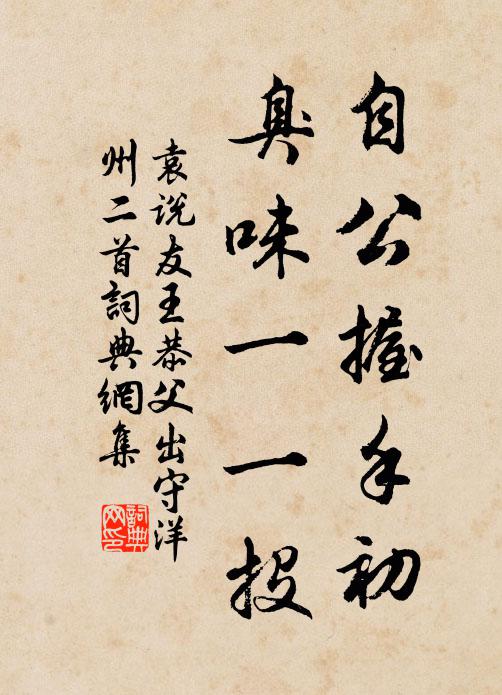 自公握手初
臭味一一投
袁说友王恭父出守洋
州二首詞典網集
詞典网印